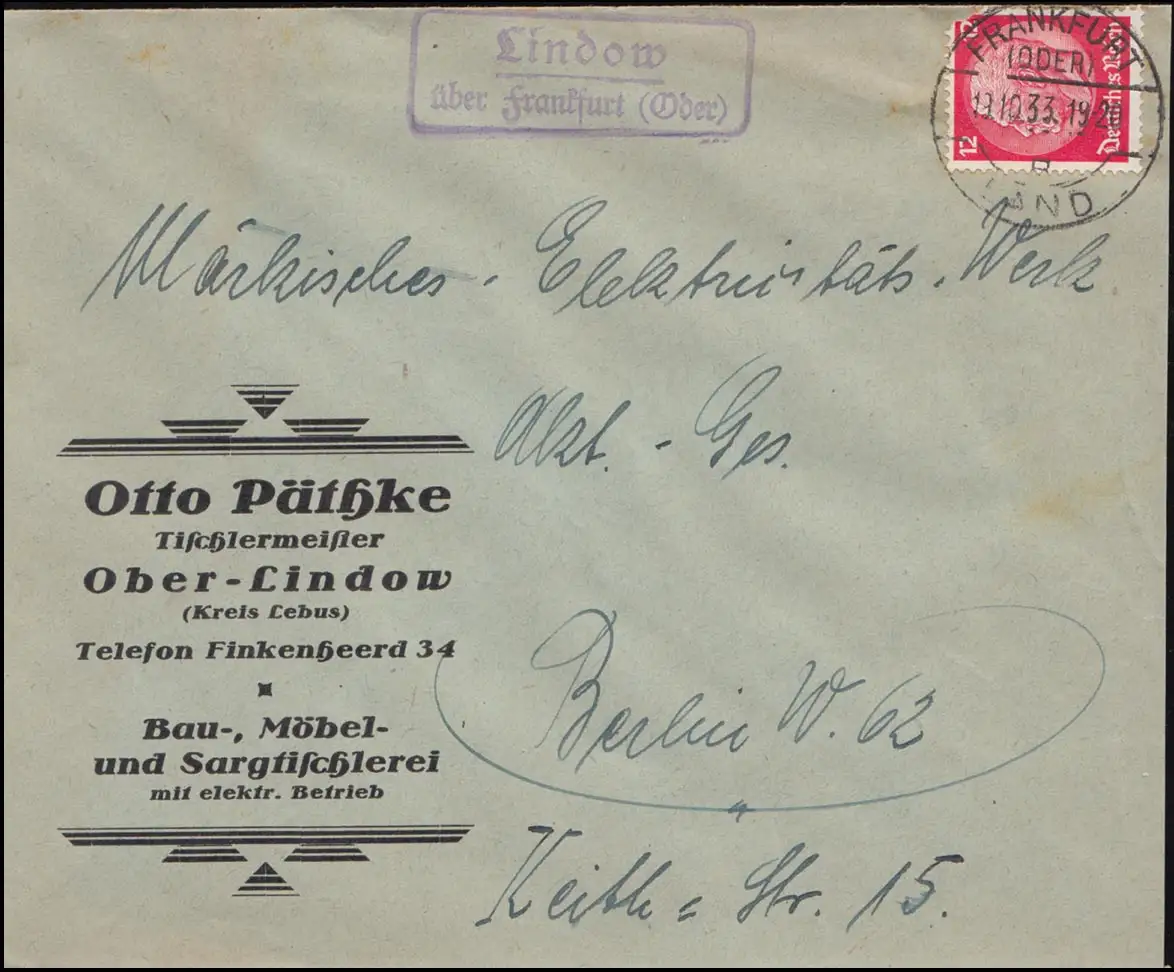 Lindow
über Frankfurt (Oder)
FRANKFURT
(ODER)
13.10.33.19-20
LAND
12
Märkisches-Elektrizitäts-Werk
Akt.-Ges.
Otto Päthke
Tischlermeister
Ober-Lindow
(Kreis Lebus)
Telefon Finkenheerd 34
Bau-, Möbel-
und Sargtischlerei
mit elektr. Betrieb
Berlin W. 62
Keith-Str. 15.